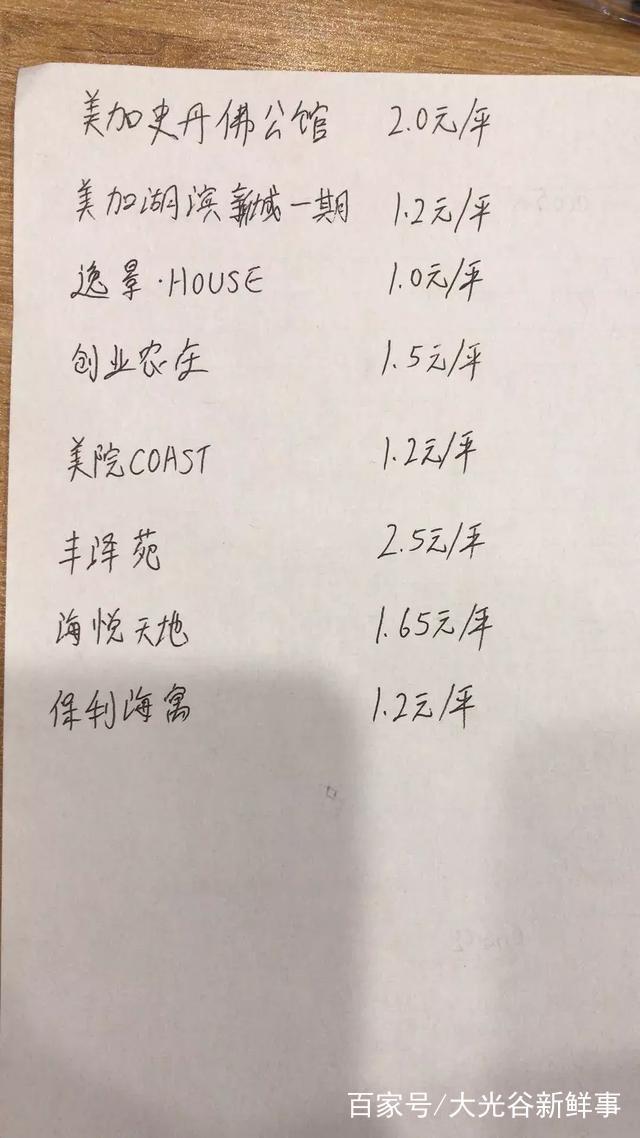 美加史丹佛公馆 2.0元/平
美加湖滨新城一期 1.2元/平
逸景·HOUSE 1.0元/平
创业农庄 1.5元/平
美院COAST 1.2元/平
丰泽苑 2.5元/平
海悦天地 1.65元/平
保利海寓 1.2元/平
百家号/大光谷新鲜事